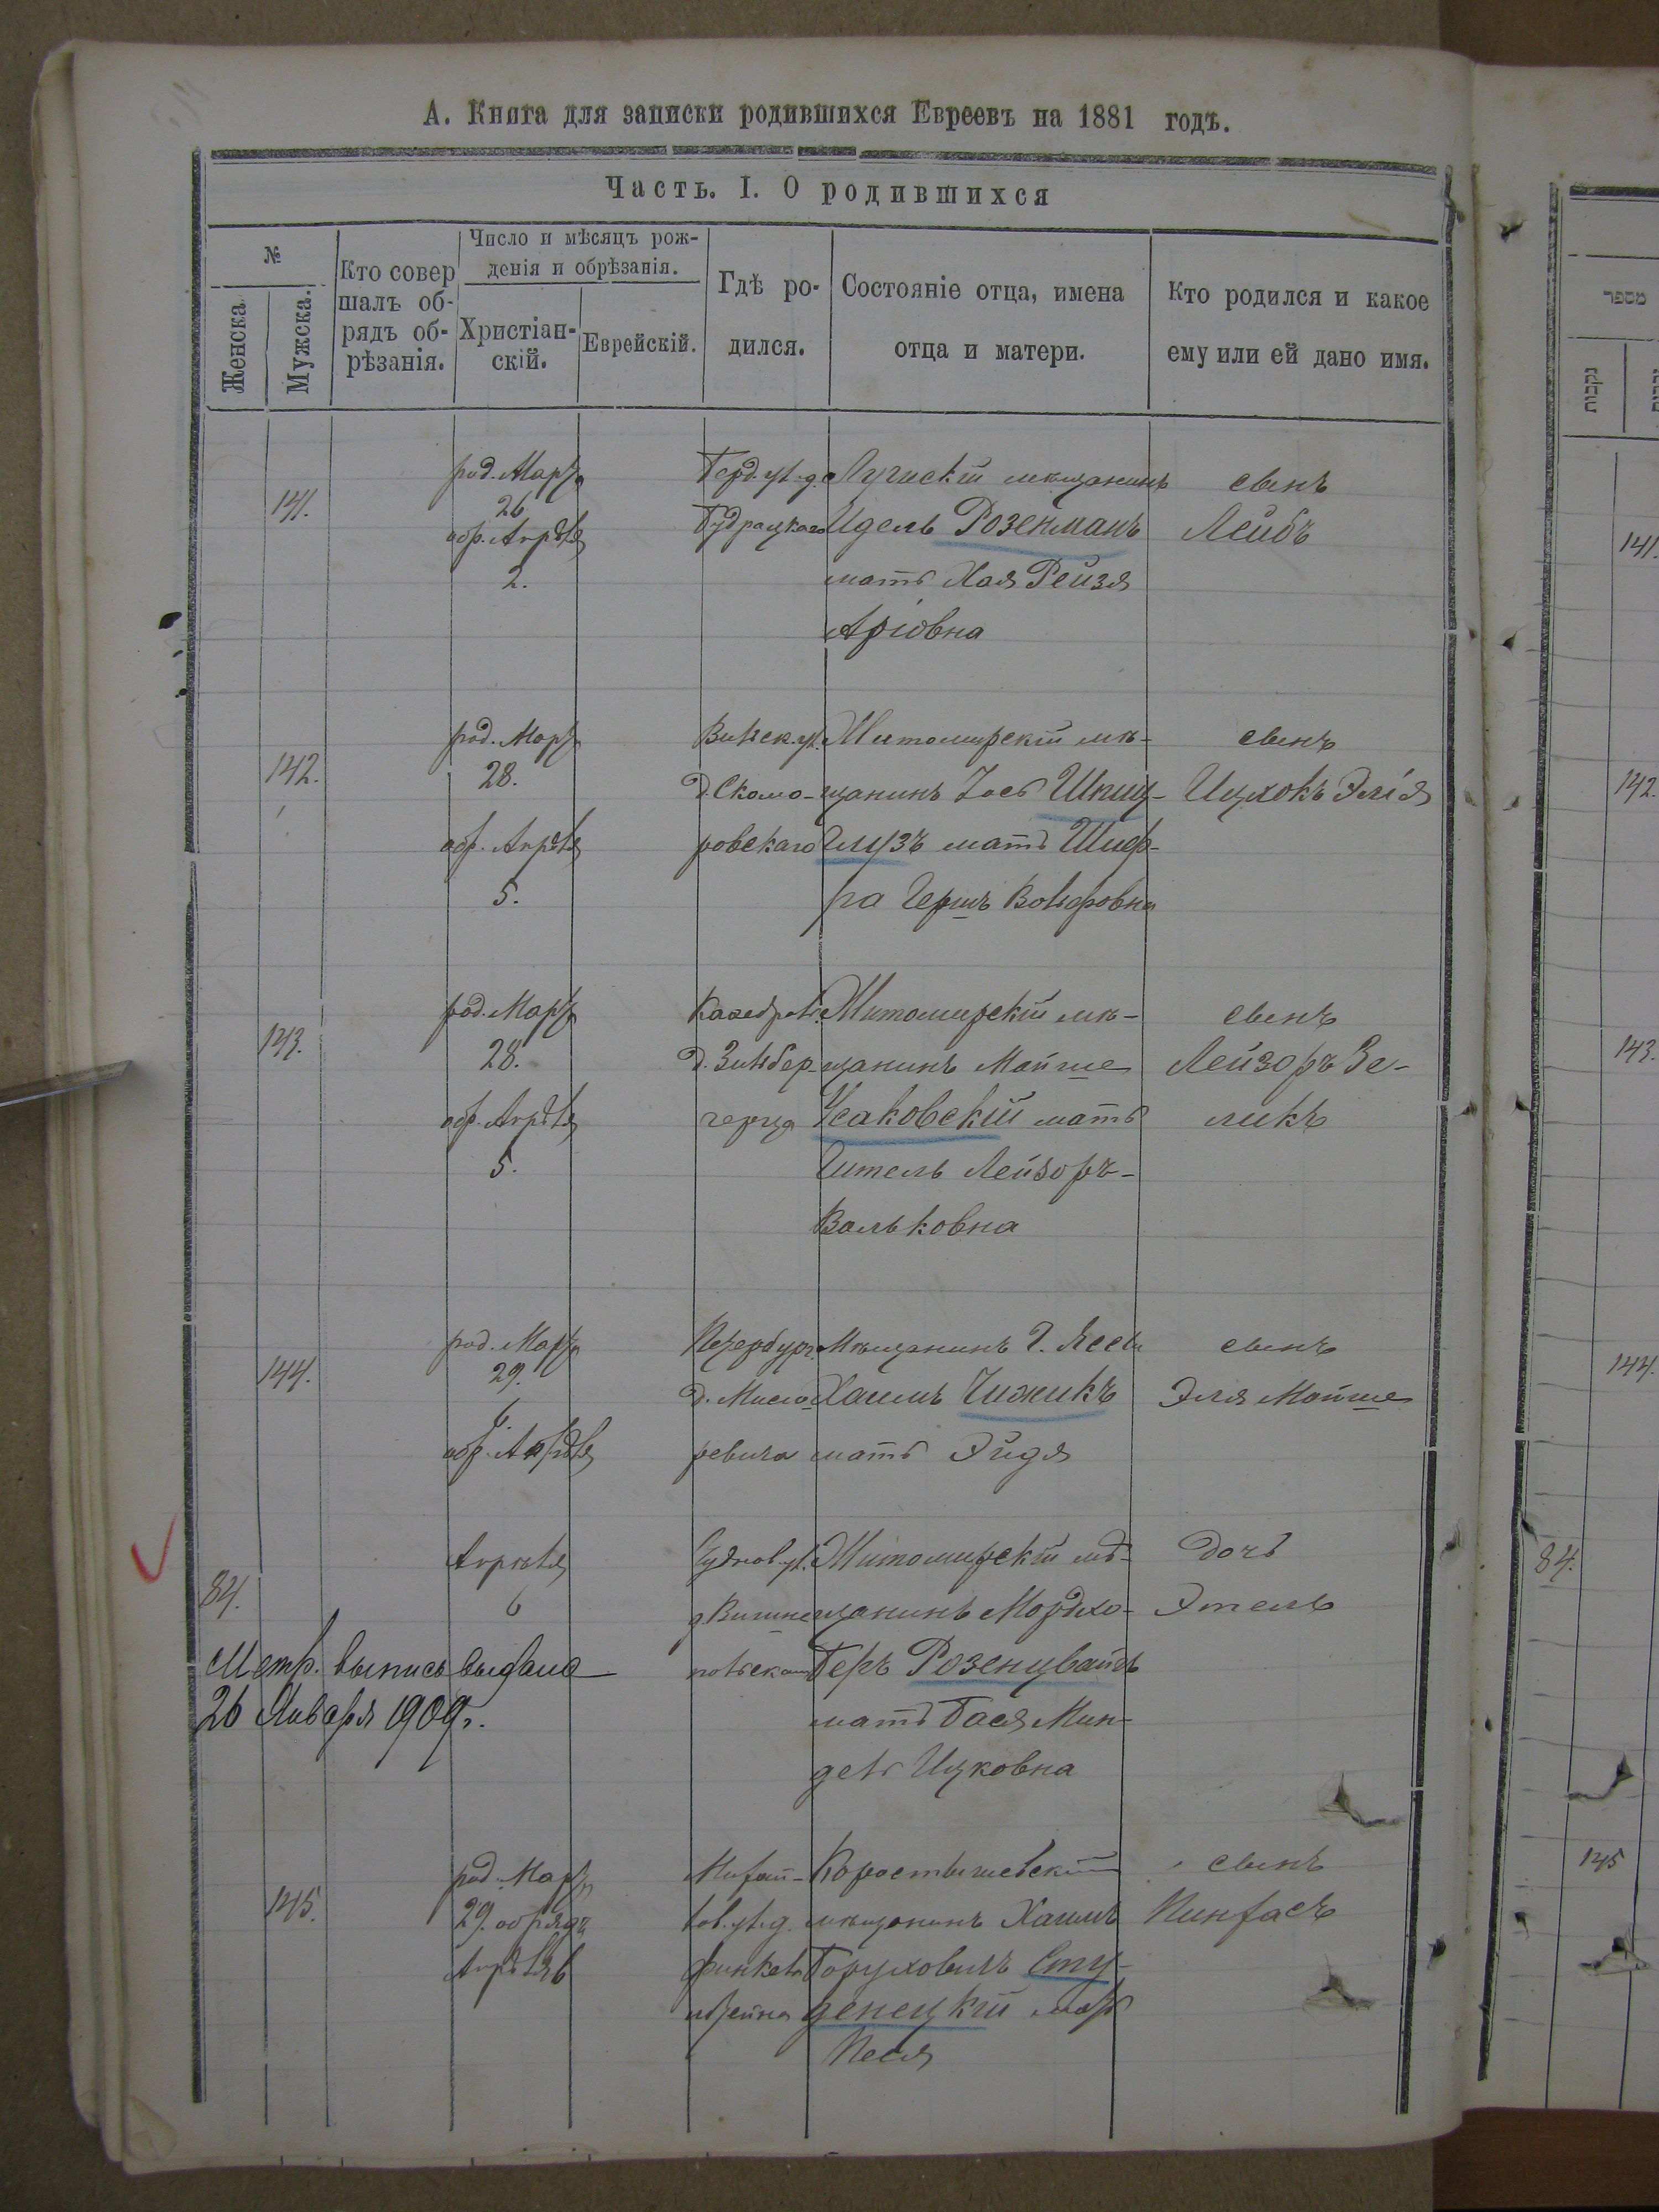 А. Книга для записки родившихся Евреевъ на 1881 годъ.
Часть. I. О родившихся
№
Женска
Мужска.
Кто совер
шалъ об-
рядъ об-
рѣзанія.
Число и мѣсяцъ рож-
денія и обрѣзанія.
Христіан-
скій.
Еврейскій.
Гдѣ ро-
дился.
Состояніе отца, имена
отца и матери.
Кто родился и какое
ему или ей дано имя.
141.
род. Марта
26
обр. Апрѣля
2.
мѣщанинъ
Идель Розенманъ
мать Хая Рейзя
Аріовна
сынъ
Лейбъ
142.
род. Марта
28.
обр. Апрѣля
5.
д. Скомо-
ровскаго
Житомирскій мѣ-
щанинъ Іось Шпиц-
глузъ мать Шиф-
ра Гершъ Вольфовна
сынъ
Ицхокъ Элія
143.
род. Марта
28.
обр. Апрѣля
5.
д. Зильбер-
герца
Житомирскій мѣ-
щанинъ Мойше
Усаковскій мать
Гитель Лейзоръ-
Вольковна
сынъ
Лейзоръ Зе-
ликъ
144.
род. Марта
29.
6.
обр. Апрѣля
Петербург.
ревича
Мѣщанинъ Г. Яссы
Хаимъ Чижикъ
мать Эйдя
сынъ
Эля Мойше
84.
Апрѣля
6
Чуднов. ул.
д. Вишне
польскаго
Житомирскій мѣ-
щанинъ Мордхо-
Беръ Розенцвайгъ
мать Бася Мин-
дель Ицковна
дочь
Этель
Метр. выпись выдана
26 Января 1909 г.
145.
род. Марта
29. обрядъ
Апрѣля 6
Михай-
лов. ул. д.
Финкель
штейна
Коростышевскій
мѣщанинъ Хаимъ
Боруховичъ Сту-
денецкій мать
Песя
сынъ
Пинхасъ
מספר
נקבות
141.
142.
143.
144.
84.
145